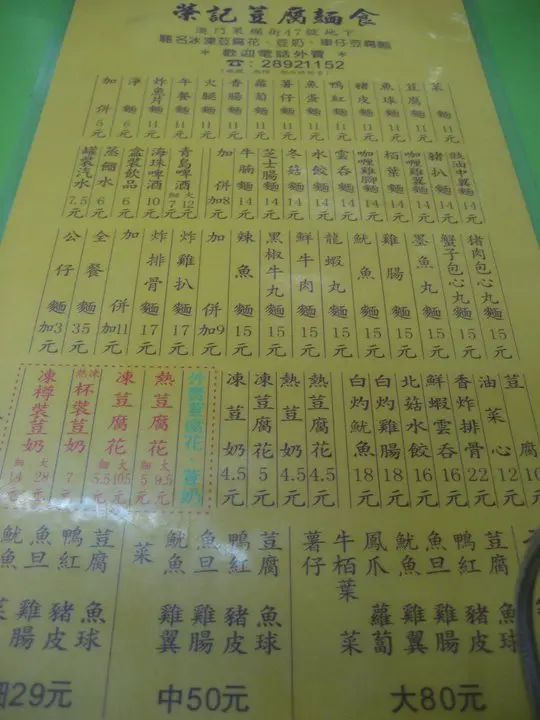 榮記荳腐麵食
澳門菓欄街47號地下
馳名冰凍荳腐花、荳奶、車仔荳腐麵
* 歡迎電話外賣 *
☎: 28921152
菜麵11元
荳腐麵11元
魚球麵11元
豬皮麵11元
鴨紅麵11元
魚蛋麵11元
薯仔麵11元
蘿蔔麵11元
香腸麵11元
火腿麵11元
午餐麵11元
炸魚片麵14元
淨麵6元
加併5元
豉油中翼麵14元
豬扒麵14元
咖喱雞翼麵14元
柏葉麵14元
咖喱雞腳麵14元
雲吞麵14元
水餃麵14元
冬菇麵14元
芝士腸麵14元
牛腩麵14元
加併加8元
青島啤酒大12細7元
海珠啤酒10元
盒裝飲品6元
蒸餾水6元
罐裝汽水7.5元
豬肉包心丸麵15元
蟹子包心丸麵15元
墨魚丸麵15元
雞腸麵15元
魷魚麵15元
龍蝦丸麵15元
鮮牛肉麵15元
黑椒牛丸麵15元
辣魚麵15元
加併加9元
炸雞扒麵17元
炸排骨麵17元
加併加11元
全餐麵35元
公仔麵加3元
荳腐10元
油菜心12元
香炸排骨22元
鮮蝦雲吞16元
北菇水餃16元
白灼雞腸18元
白灼魷魚18元
熱荳腐花4.5元
熱荳奶4.5元
凍荳腐花5元
凍荳奶4.5元
外賣荳腐花、荳奶
熱荳腐花大9.5細5元
凍荳腐花大10.5細5.5元
凍熱杯裝荳奶7元
凍樽裝荳奶大28細14元
荳腐 鴨紅 魚旦 魷魚 鳳爪 牛柏葉 薯仔
魚球 豬皮 雞腸 雞翼 蘿蔔 菜
大80元
荳腐 鴨紅 魚旦 魷魚 菜
魚球 豬皮 雞腸 雞翼
中50元
荳腐 鴨紅 魚旦 魷魚
魚球 豬皮 雞腸 菜
細29元